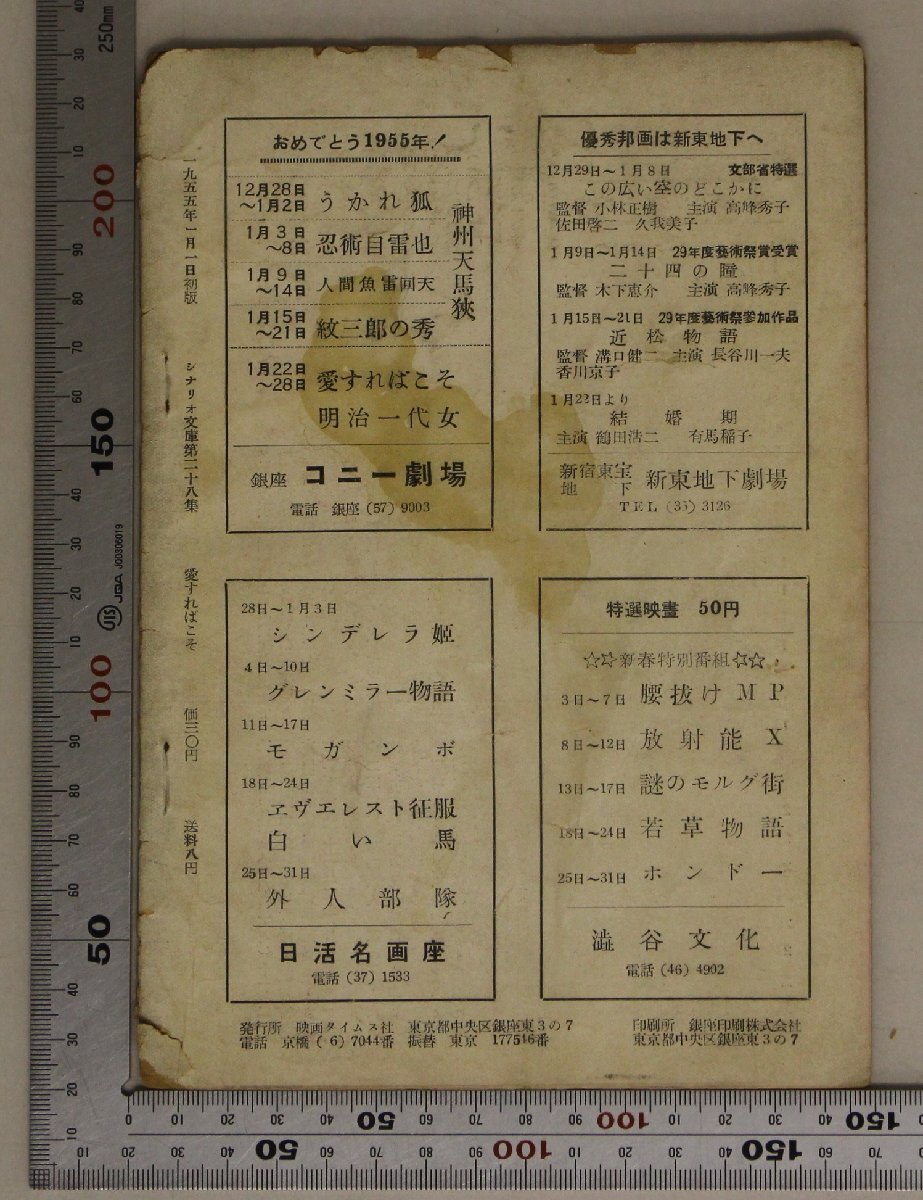 おめでとう1955年!
12月28日～1月2日 うかれ狐
1月3日～8日 忍術自雷也
1月9日～14日 人間魚雷回天
1月15日～21日 紋三郎の秀
神州天馬狹
1月22日～28日 愛すればこそ
明治一代女
銀座 コニー劇場
電話 銀座(57)9003
優秀邦画は新東地下へ
12月29日～1月8日 文部省特選
この広い空のどこかに
監督 小林正樹 主演 高峰秀子
佐田啓二 久我美子
1月9日～1月14日 29年度藝術祭賞受賞
二十四の瞳
監督 木下恵介 主演 高峰秀子
1月15日～21日 29年度藝術祭参加作品
近松物語
監督 溝口健二 主演 長谷川一夫
香川京子
1月22日より
結婚期
主演 鶴田浩二 有馬稲子
新宿東宝地下 新東地下劇場
TEL (35) 3126
28日～1月3日
シンデレラ姫
4日～10日
グレンミラー物語
11日～17日
モガンボ
18日～24日
ヱヴエレスト征服
白い馬
25日～31日
外人部隊
日活名画座
電話(37)1533
特選映畫 50円
☆☆新春特別番組☆☆
3日～7日 腰抜けMP
8日～12日 放射能X
13日～17日 謎のモルグ街
18日～24日 若草物語
25日～31日 ホンドー
澁谷文化
電話(46)4902
一九五五年一月一日初版 シナリオ文庫第二十八集 愛すればこそ 価三〇円 送料八円
発行所 映画タイムス社 東京都中央区銀座東3の7
電話 京橋(6)7044番 振替 東京 177516番
印刷所 銀座印刷株式会社
東京都中央区銀座東3の7
JIS JQA JQ0306019
250mm
200
150
100
50
50
100
150
50
100
150